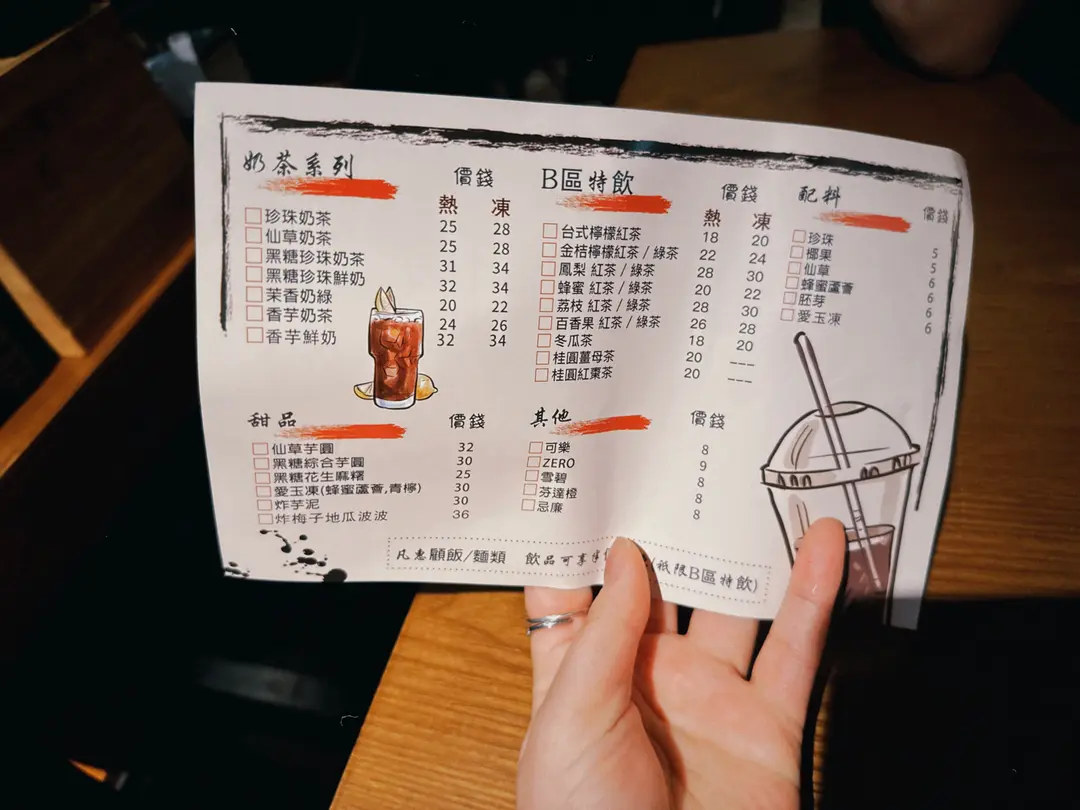 奶茶系列 價錢
熱 凍
珍珠奶茶 25 28
仙草奶茶 25 28
黑糖珍珠奶茶 31 34
黑糖珍珠鮮奶 32 34
茉香奶綠 20 22
香芋奶茶 24 26
香芋鮮奶 32 34
B區特飲 價錢
熱 凍
台式檸檬紅茶 18 20
金桔檸檬紅茶 / 綠茶 22 24
鳳梨 紅茶 / 綠茶 28 30
蜂蜜 紅茶 / 綠茶 20 22
荔枝 紅茶 / 綠茶 28 30
百香果 紅茶 / 綠茶 26 28
冬瓜茶 18 20
桂圓薑母茶 20 ---
桂圓紅棗茶 20 ---
配料 價錢
珍珠 5
椰果 5
仙草 6
蜂蜜蘆薈 6
胚芽 6
愛玉凍 6
甜品 價錢
仙草芋圓 32
黑糖綜合芋圓 30
黑糖花生麻糬 25
愛玉凍(蜂蜜蘆薈,青檸) 30
炸芋泥 30
炸梅子地瓜波波 36
其他 價錢
可樂 8
ZERO 9
雪碧 8
芬達橙 8
忌廉 8
凡惠顧飯/麵類 飲品可享半 (祇限B區特飲)